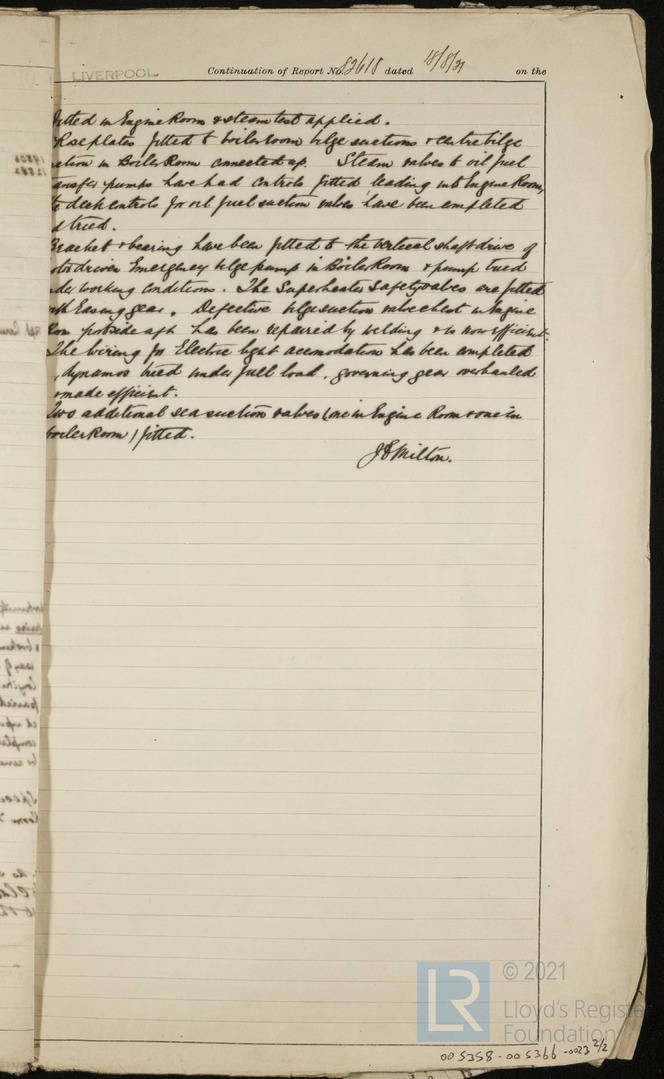 LIVERPOOL
Continuation of Report No. 82618 dated 18/8/31 on the
fitted in Engine Room & steam test applied.
Rose plates fitted to boiler room bilge suctions & centre bilge
suction in Boiler Room connected up. Steam valves to oil fuel
transfer pumps have had controls fitted leading into Engine Room,
deck controls for oil fuel suction valves have been completed
& tried.
Bracket & bearing have been fitted to the vertical shaft drive of
motor driven Emergency bilge pump in Boiler Room & pump tried
under working conditions. The Superheater Safety valves are fitted
with Easing gear. Defective bilge suction valve chest in Engine
Room port side aft has been repaired by welding & is now efficient.
The wiring for Electric light accomodation has been completed
, dynamos tried under full load, governing gear overhauled
& made efficient.
Two additional sea suction valves (one in Engine Room & one in
boiler Room) fitted.
J S Milton.
© 2021
LR
Lloyd's Register
Foundation
005358-005366-0023 2/2